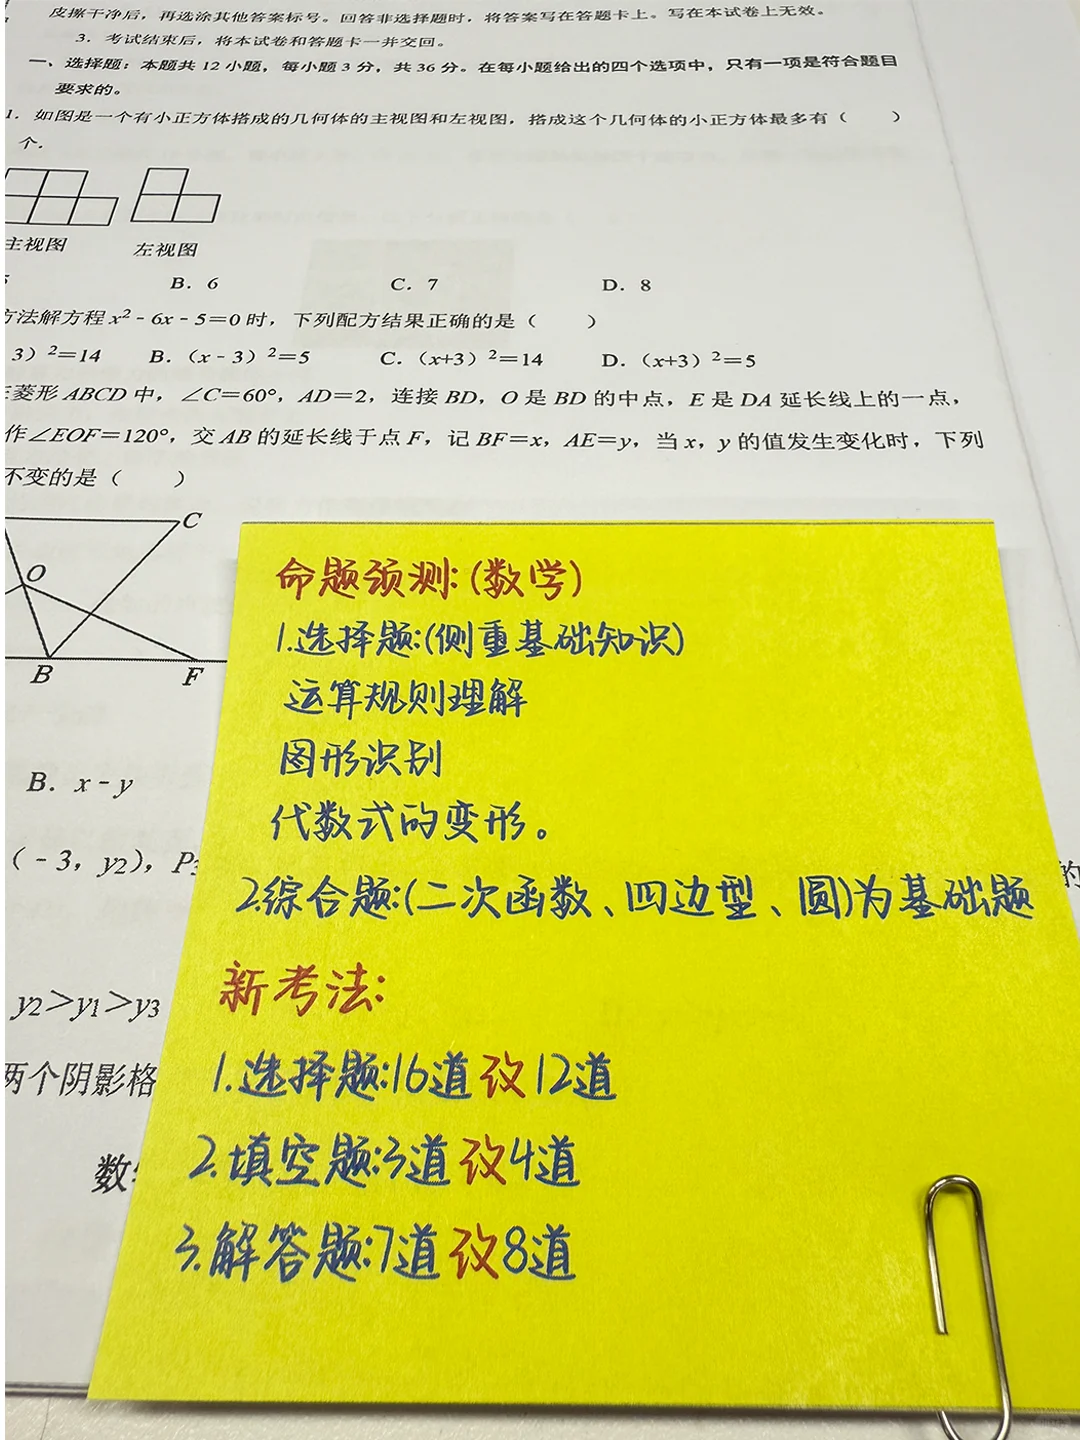 皮擦干净后，再选涂其他答案标号。回答非选择题时，将答案写在答题卡上。写在本试卷上无效。
3．考试结束后，将本试卷和答题卡一并交回。
一、选择题：本题共 12 小题，每小题 3 分，共 36 分。在每小题给出的四个选项中，只有一项是符合题目
要求的。
1．如图是一个有小正方体搭成的几何体的主视图和左视图，搭成这个几何体的小正方体最多有（　　）
个．
主视图 左视图
B．6 C．7 D．8
方法解方程 x²﹣6x﹣5＝0 时，下列配方结果正确的是（　　）
3）²＝14 B．（x﹣3）²＝5 C．（x+3）²＝14 D．（x+3）²＝5
菱形 ABCD 中，∠C＝60°，AD＝2，连接 BD，O 是 BD 的中点，E 是 DA 延长线上的一点，
作∠EOF＝120°，交 AB 的延长线于点 F，记 BF＝x，AE＝y，当 x，y 的值发生变化时，下列
不变的是（　　）
C
O
B F
B．x﹣y
（﹣3，y₂），P₃ 的
y₂＞y₁＞y₃
两个阴影格
数
命题预测:(数学)
1.选择题:(侧重基础知识)
运算规则理解
图形识别
代数式的变形。
2.综合题:(二次函数、四边型、圆)为基础题
新考法:
1.选择题:16道改12道
2.填空题:3道改4道
3.解答题:7道改8道